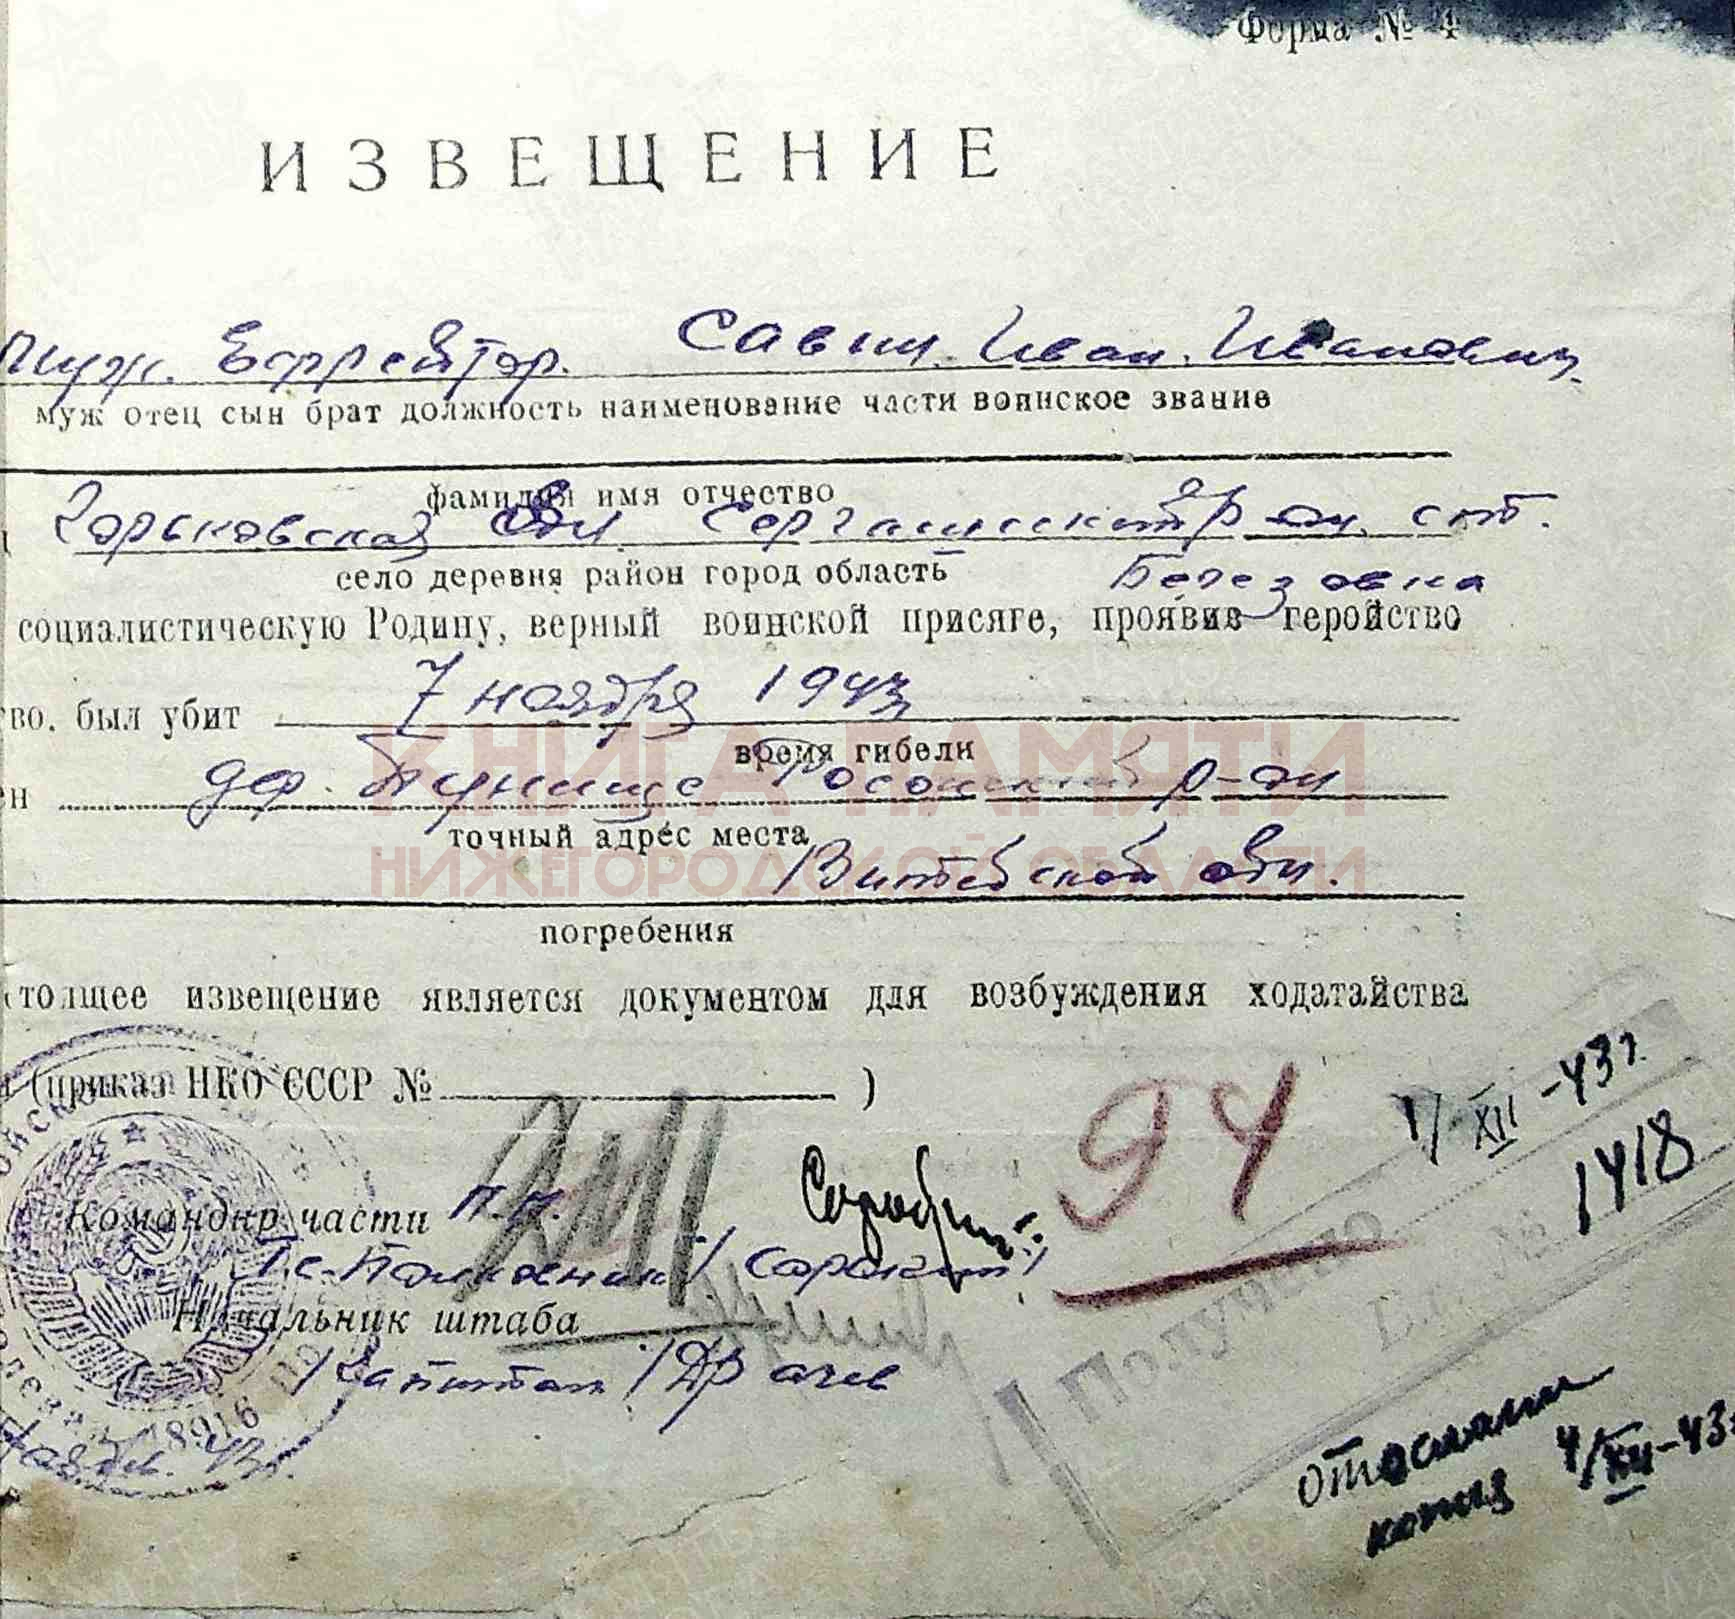 Форма № 4
ИЗВЕЩЕНИЕ
муж. Ефрейтор. Савин. Иван. Иванович.
муж отец сын брат должность наименование части воинское звание
фамилия имя отчество
Горьковская обл. Сергачский р-он. ст.
село деревня район город область
Березовка
социалистическую Родину, верный воинской присяге, проявив геройство
во. был убит 7 ноября 1943
время гибели
ен дер. Тернище Росонский р-он
точный адрес места
Витебской обл.
погребения
стоящее извещение является документом для возбуждения ходатайства
(приказ НКО СССР № )
1/XII-43г.
1418
94
Командир части п.п.
Подполковник /Сорокин/
Начальник штаба
/Капитан /Драчев
18916
43г.
Получено
Вх. №
отослали
копия 4/XII-43
КНИГА ПАМЯТИ
НИЖЕГОРОДСКОЙ ОБЛАСТИ